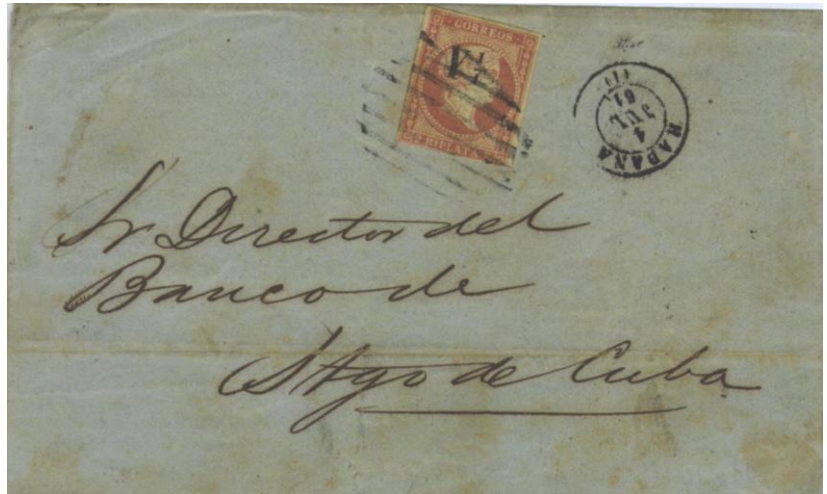 CORREOS
Y ¼
HABANA
4
JUL
61
(1)
Sr Director del
Banco de
StAgo de Cuba